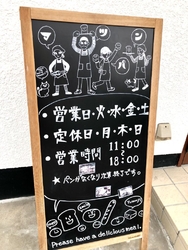 マツシパン
・営業日・火・水・金・土
・定休日・月・木・日
・営業時間 11:00
~
18:00
※パンがなくなり次第 終了です。
Please have a delicious meal.